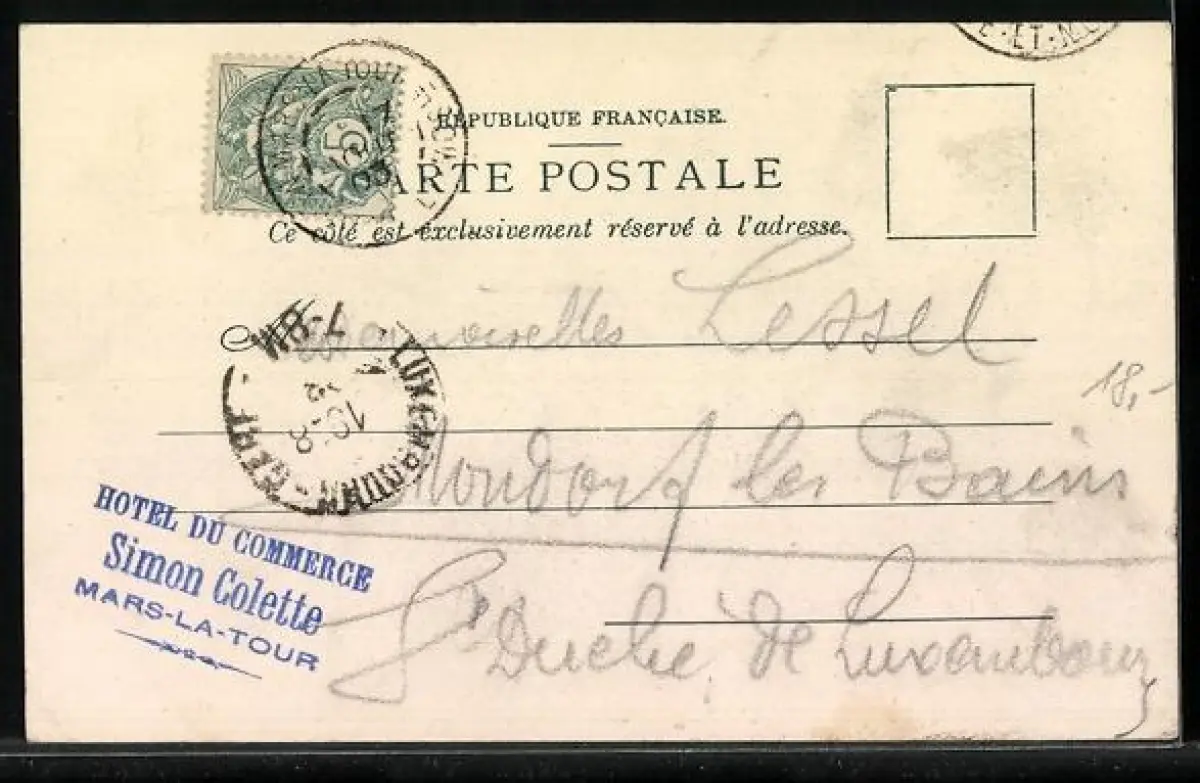 E · ET · M
MARS-LA-TOUR
5c
03
RÉPUBLIQUE FRANÇAISE.
CARTE POSTALE
Ce côté est exclusivement réservé à l'adresse.
Mesdemoiselles Lessel
18,-
Mondorf les Bains
Gd Duché, de Luxembourg
7-8M
LUXEMBOURG-
10-8
HOTEL DU COMMERCE
Simon Colette
MARS-LA-TOUR